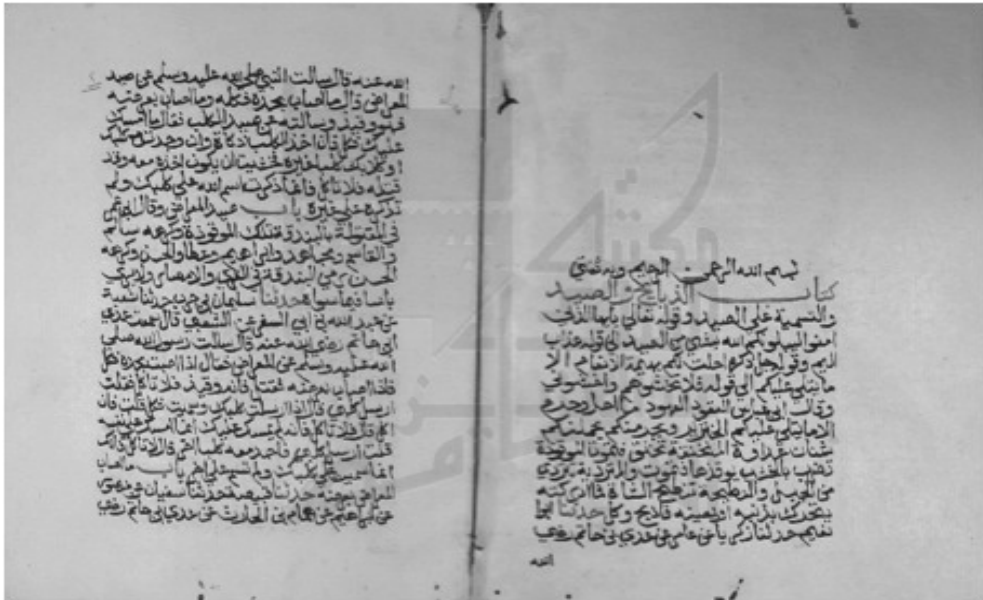 بسم الله الرحمن الرحيم وبه ثقتي
كتاب الذبائح والصيد
والتسمية على الصيد وقوله تعالى يأيها الذين
امنوا ليبلونكم الله بشيء من الصيد الى قوله عذاب
اليم وقوله جل ذكره احلت لكم بهيمة الانعام الا
ما يتلى عليكم الى قوله فلا تخشوهم واخشوني
وقال ابن عباس العقود العهود ما احل وحرم
الا ما يتلى عليكم الخنزير يجرمنكم يحملنكم
شنان عداوة المنخنقة تخنق فتموت الموقوذة
تضرب بالخشب يوقذها فتموت والمتردية تتردى
من الجبل والنطيحة تنطح الشاة فما ادركته
يتحرك بذنبه او بعينه فاذبح وكل حدثنا ابو
نعيم حدثنا زكرياء عن عامر عن عدي بن حاتم رضي
الله
الله عنه قال سالت النبي صلى الله عليه وسلم عن صيد
المعراض قال ما اصاب بحده فكله وما اصاب بعرضه
فهو وقيذ وسالته عن صيد الكلب فقال ما امسك
عليك فكل فان اخذ الكلب ذكاة وان وجدت مع كلبك
او كلابك كلبا غيره فخشيت ان يكون اخذه معه وقد
قتله فلا تاكل فانما ذكرت اسم الله على كلبك ولم
تذكره على غيره باب صيد المعراض وقال ابن عمر
في المقتولة بالبندقة تلك الموقوذة وكرهه سالم
والقاسم ومجاهد وابراهيم وعطاء والحسن وكره
الحسن رمي البندقة في القرى والامصار ولا يرى
باسا فيما سواه حدثنا سليمان بن حرب حدثنا شعبة
عن عبد الله بن ابي السفر عن الشعبي قال سمعت عدي
ابن حاتم رضي الله عنه قال سالت رسول الله صلى
الله عليه وسلم عن المعراض فقال اذا اصبت بحده فكل
فاذا اصاب بعرضه فقتل فانه وقيذ فلا تاكل فقلت
ارسل كلبي قال اذا ارسلت كلبك وسميت فكل قلت فان
اكل قال فلا تاكل فانه لم يمسك عليك انما امسك على نفسه
قلت ارسل كلبي فاجد معه كلبا اخر قال لا تاكل فانك
انما سميت على كلبك ولم تسم على اخر باب ما اصاب
المعراض بعرضه حدثنا قبيصة حدثنا سفيان عن منصور
عن ابراهيم عن همام بن الحارث عن عدي بن حاتم رضي